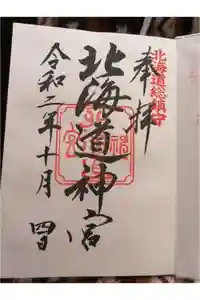 奉拝
北海道総鎮守
北海道神宮
令和二年十月四日